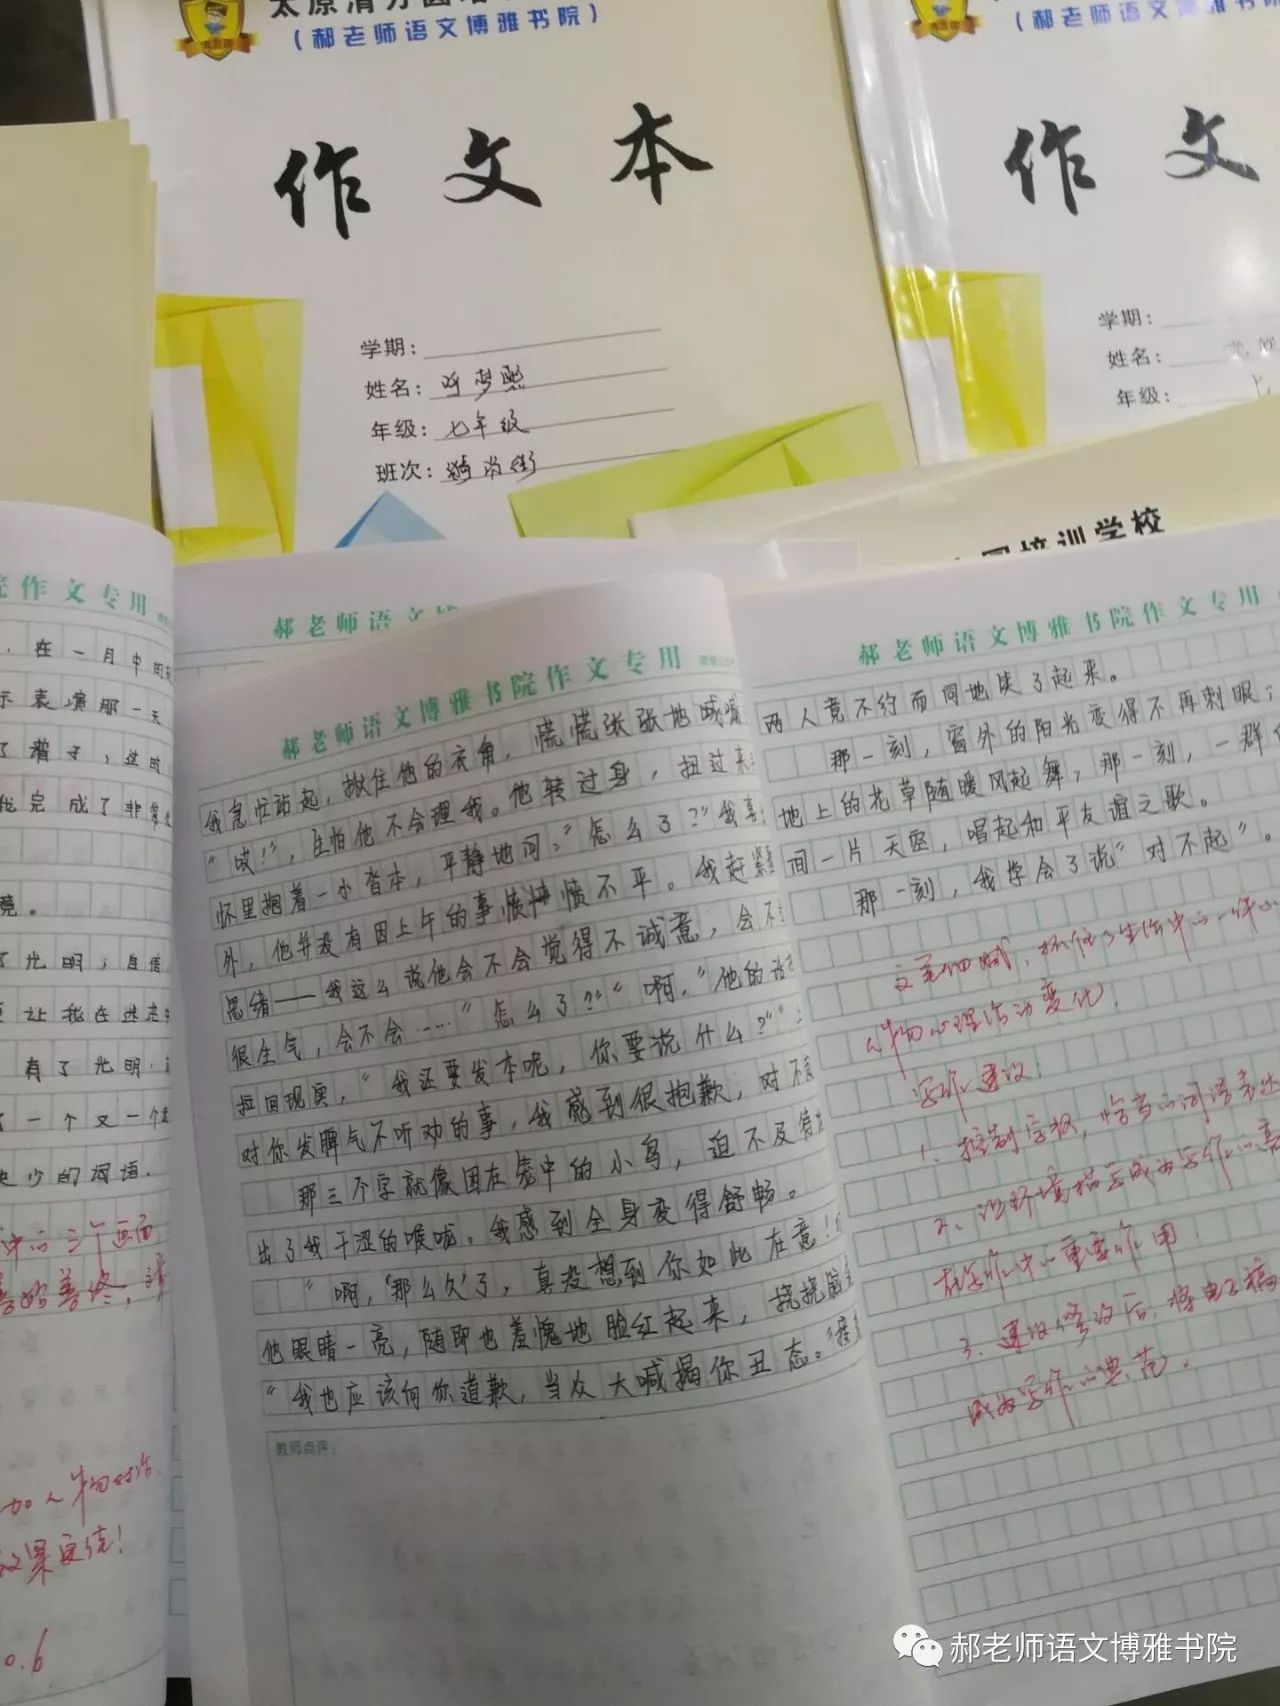 (郝老师语文博雅书院)
作文本
学期:
姓名:
年级: 七年级
班次:
(郝老师语文博雅书院
作文
学期:
姓名:
年级:
培训学校
院作文专用
在一月中的
示表演那一天
完成了非常
竟。
了光明,自信
有了光明
了一个又一个
少的词语.
中的三个画面
加人物对话
效果更佳!
0.6
郝老师语文博
郝老师语文博雅书院作文专用
我急忙站起,揪住他的衣角,慌慌张张地喊
“哎!”,生怕他不会理我。他转过身,扭过来
怀里抱着一小沓本,平静地问:“怎么了?”我
外,他并没有因上午的事愤愤不平。我赶紧
思绪——我这么说他会不会觉得不诚意,会不
很生气,会不会……“怎么了?”“啊,”他的话
拉回现实,“我还要发本呢,你要说什么?”
对你发脾气不听劝的事,我感到很抱歉,对不
那三个字就像困在壳中的小鸟,迫不及待
出了我干涩的喉咙。我感到全身变得舒畅。
“啊,‘那么久’了,真没想到你如此在意!
他眼睛一亮,随即也羞愧地脸红起来,挠挠脑
“我也应该向你道歉,当众大喊揭你丑态。”接
教师点评:
郝老师语文博雅书院作文专用
两人竟不约而同地笑了起来。
那一刻,窗外的阳光变得不再刺眼;
地上的花草随暖风起舞;那一刻,一群
间一片天空,唱起和平友谊之歌。
那一刻,我学会了说“对不起”。
文笔细腻,抓住了生活中的一件小
人物心理活动变化!
写作建议:
1、控制字数,恰当的词语表达
2、让环境描写成为写作的亮
在写作中的重要作用!
3、建议修改后,将电子稿
成为写作的典范.
郝老师语文博雅书院